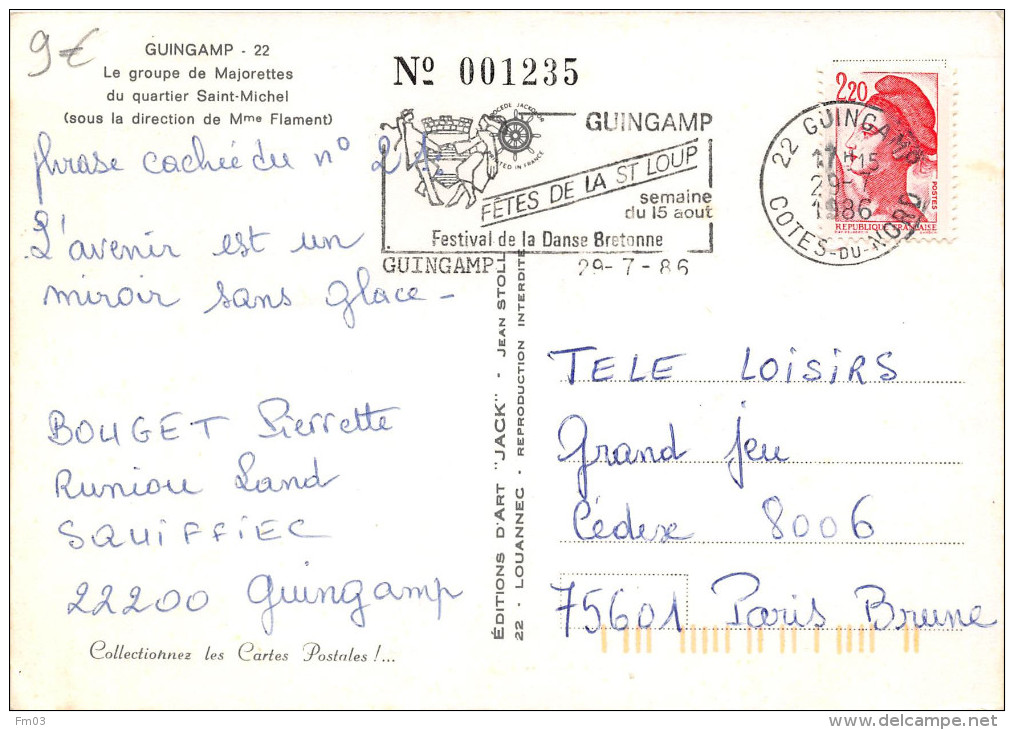 9€
GUINGAMP - 22
Le groupe de Majorettes
du quartier Saint-Michel
(sous la direction de Mme Flament)
Nº 001235
GUINGAMP
FÊTES DE LA ST LOUP
semaine
du 15 aout
Festival de la Danse Bretonne
GUINGAMP 29-7-86
2,20
POSTES
REPUBLIQUE FRANÇAISE
22 GUINGAMP
17H15
29-
1986
COTES-DU-NORD
phrase cachée du nº
L'avenir est un
miroir sans glace -
BOUGET Pierrette
Runiou Land
SQUIFFIEC
22200 Guingamp
Collectionnez les Cartes Postales !...
ÉDITIONS D'ART "JACK" - JEAN STOLL
22 - LOUANNEC - REPRODUCTION INTERDITE
TELE LOISIRS
Grand Jeu
Cédex 8006
75601 Paris Brune
Fm03
www.delcampe.net